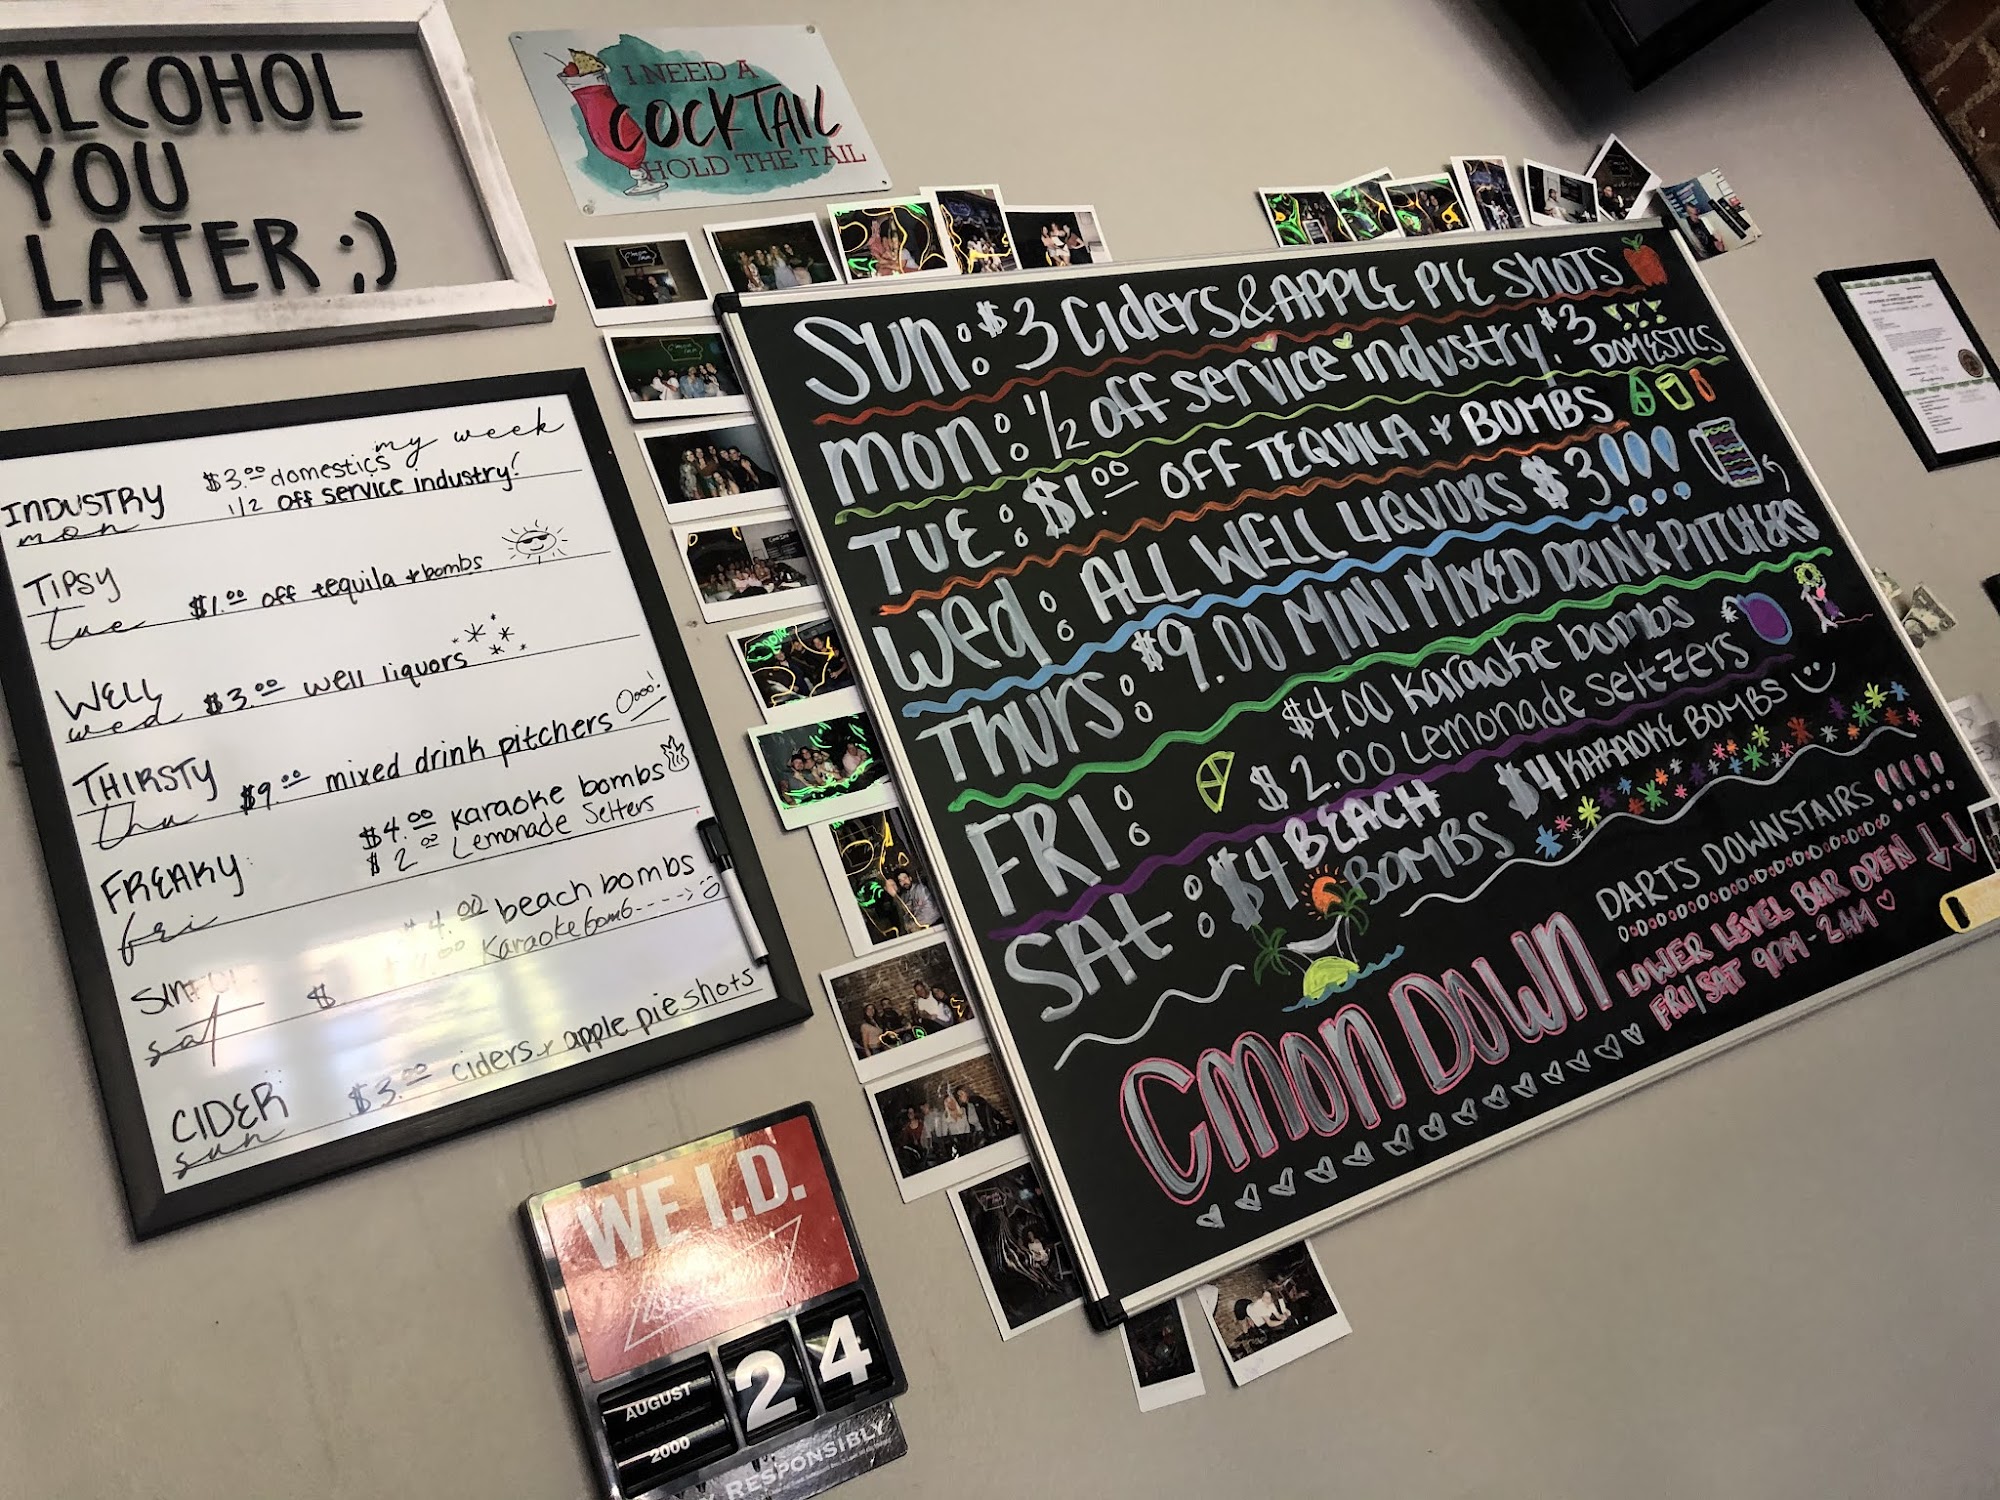 ALCOHOL
YOU
LATER ;)
I NEED A
COCKTAIL
HOLD THE TAIL
my week
INDUSTRY $3.00 domestics
mon 1/2 off service industry!
TIPSY
tue $1.00 off tequila + bombs
WELL
wed $3.00 well liquors
THIRSTY
thu $9.00 mixed drink pitchers Oooo!
FREAKY $4.00 karaoke bombs
fri $2.00 Lemonade Selters
$4.00 beach bombs
sat $ Karaoke bomb---->
CIDER
sun $3.00 ciders + apple pie shots
SUN: $3 Ciders & APPLE PIE SHOTS
MON: 1/2 off service industry! $3 DOMESTICS
TUE: $1.00 OFF TEQUILA + BOMBS
WED: ALL WELL LIQUORS $3!!!
THURS: $9.00 MINI MIXED DRINK PITCHERS
FRI: $4.00 karaoke bombs
$2.00 Lemonade Seltzers
SAT: $4 BEACH BOMBS $4 KARAOKE BOMBS
CMON DOWN
DARTS DOWNSTAIRS !!!!!
LOWER LEVEL BAR OPEN
FRI/SAT 9PM - 2AM
WE I.D.
AUGUST 24
2000
RESPONSIBLY